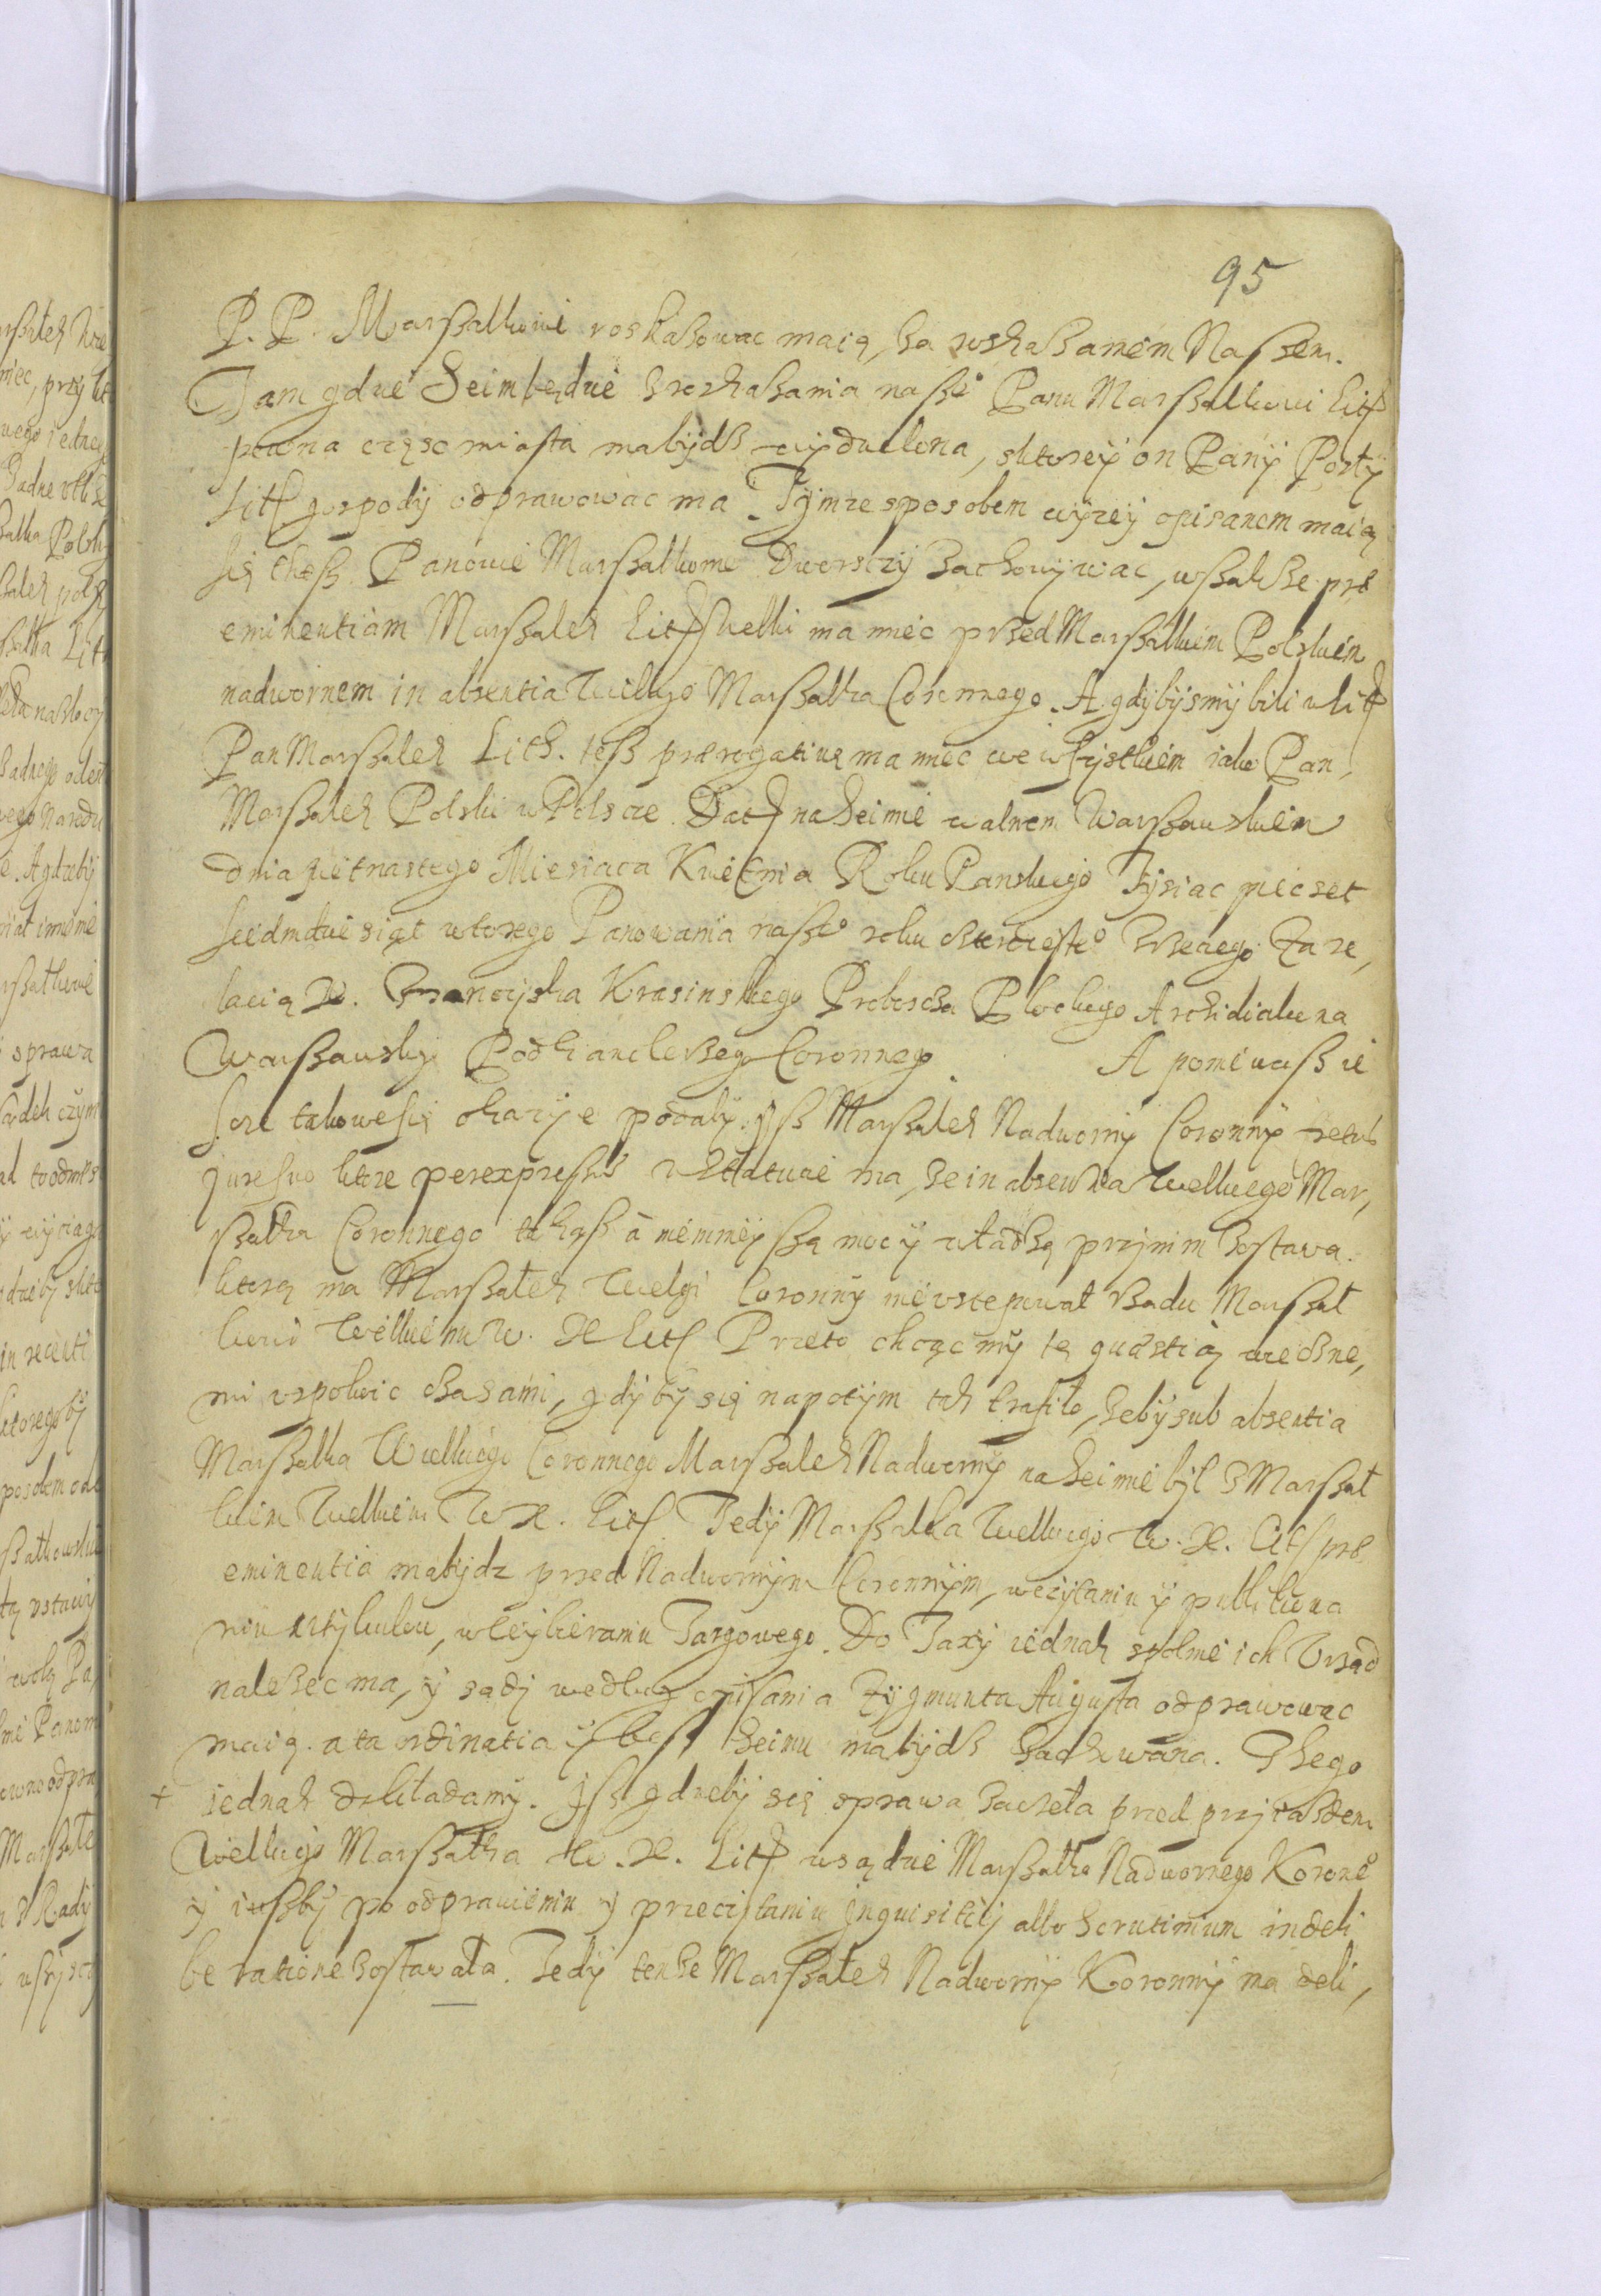 95
P. P. Marßałkowi roskaßowac maią, ßa roskaßaniem Naßem.
Tam gdzie Seim będzie ß roskaßania naßeo Panu Marßałkowi Litſ
pewna częsc miasta ma bydß wydzielona, s ktorey on Pany Posły
Litſ gospody odprawowac ma. Tymze sposobem wyzey opisanem maią
się theß Panowie Marßałkowie Dworsczy ßachowywac, wßakße præ
eminentiam Marßałek Litſ Wielki ma miec przed Marßałkiem Polskiem
nadwornem in absentia Wielkiego Marßałka Coronnego. A gdybysmy bili w Litſ
Pan Marßałek Lith. teß prærogatiuę ma miec we wßystkiem iako Pan,
Marßałek Polski w Polscze. Datſ na Seimie walnem Warßauskiem
dnia pietnastego Miesiaca Kwietnia Roku Panskiego Tysiac piecset
siedmdziesiąt wtorego Panowania naßeo roku cßterdziesteo trzeciego. Za re,
lacią X. Franciska Krasinskiego Proboscßa Płockiego Archidiakona
Warßauskie Podkanclerßego Coronnego. A poniewaß ie
ſcze takowe się okazye podały, yß Marßałek Nadworny Coronny
jure suo ktore per expressum w Statucie ma, ße in absentia Wielkiego Mar,
ßałka Coronnego takaß a niemnieyßą moc y władßą przy nim ßostawa.
ktorą ma Marßałek Wielgi Coronny nie vstepował ßadu Marßał
kowi Wielkiemu W. X Litſ Przeto chcąc my tę quæstią wiecßne,
mi vspokoic cßasami, gdyby się napotym tak trafiło, ßeby sub absentia
Marßałka Wielkiego Coronnego Marßałek Nadworny na Seimie był ß Marßał
kiem Wielkiem W X. Litſ. Tedy Marßałka Wielkiego W. X. Litſ præ
eminentia ma bydz przed Nadwornym Coronnym, w czytaniu y publikowa
niu artykułow, w wybieraniu Targowego. Do Taxy iednak spolnie ich Vrsąd
naleßec ma, y sądy według opisania Zygmunta Augusta odprawowac
maią. a ta ordinatia y beß Seimu ma bydß ßachowana. Thego
+ iednak dokładamy. Jß gdzieby się sprawa ßaczeła przed przyiaßdem
Wielkiego Marßałka W. X. Litſ w sądzie Marßałka Nadwornego Koroneo
y iußby po odprawieniu y przeczytaniu Inquisitiy albo Scrutinium in deli
beratione ßostawała. Tedy tenße Marßałek Nadworny Koronny ma deli,